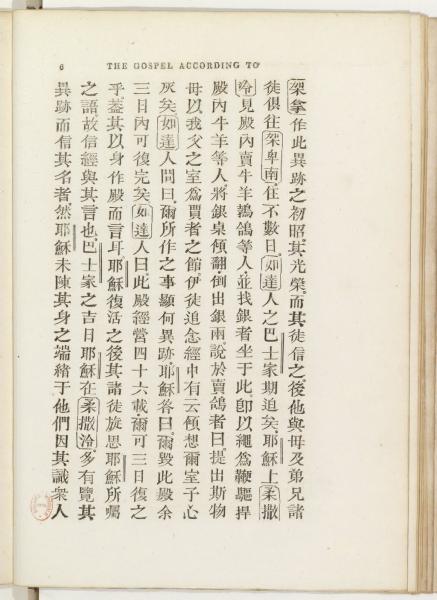 6 THE GOSPEL ACCORDING TO
架拿作此異跡之初昭其光榮而其徒信之後他與母及弟兄諸
徒俱往架卑南住不數日如達人之巴士家期迨矣耶穌上柔撒
冷見殿內賣牛羊鵓鴿等人並找銀者坐于此卽以繩爲鞭驅捍
殿內牛羊等人將銀桌傾翻倒出銀兩說於賣鴿者曰提出斯物
毋以我父之室爲賈者之館伊徒追念經中有云傾想爾室子心
灰矣如達人問曰爾所作之事顯何異跡耶穌答曰爾毀此殿余
三日內可復完矣如達人曰此殿經營四十六載爾可三日復之
乎蓋其以身作殿而言耳耶穌復活之後其諸徒旋思耶穌所囑
之語故信經與其言也巴士家之吉日耶穌在柔撒冷多有覽其
異跡而信其名者然耶穌未陳其身之端緒于他們因其識衆人